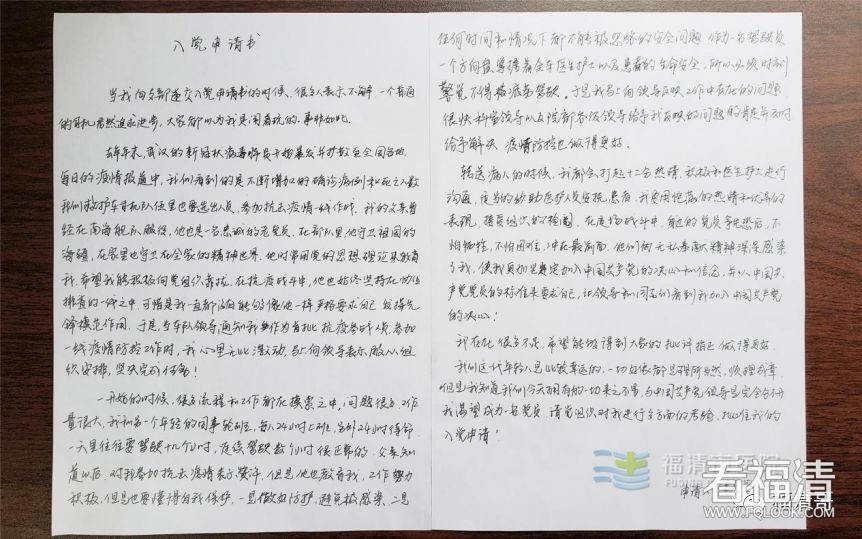 入党申请书
当我向支部递交入党申请书的时候，很多人表示不解，一个普通
的司机居然追求进步，大家都以为我是闹着玩的。事非如此。
去年年末，武汉的新冠状病毒肺炎开始暴发并扩散至全国各地，
每日的疫情报道中，我们看到的是不断增加的确诊病例和死亡人数
我们救护车司机队伍里也要选出人员，参加抗击疫情一线作战。我的父亲曾
经在南海舰队服役，他也是一名忠诚的老党员。在部队里他守卫祖国的
海疆，在家里也守卫在全家的精神世界。他时常用党的思想理论来教育
我，希望我能积极向党组织靠拢。在抗疫战斗中，他也始终坚持在
排查的一线之中。可惜是我一直都没有能够像他一样严格要求自己，发挥先
锋模范作用。于是当车队领导通知我作为首批抗疫参战人员，参加
一线疫情防控工作时，我心里无比激动，马上向领导表示服从组
织安排，坚决完成任务！
一开始的时候，很多流程和工作都在摸索之中，问题很多，工作
量很大，我和另一个年轻的同事轮班，每人24小时上班，另外24小时待命
一天里往往要驾驶十几个小时，连续驾驶数个小时很正常的。父亲知
道以后，对我参加抗击疫情表示赞许，但是他也教育我，工作努力
积极，但是也要懂得自我保护，一是做好防护，避免被感染，二是
任何时间和情况下都不能被忽略的安全问题。作为一名驾驶员
一个方向盘掌握着全车医生护士以及患者的生命安全，所以必须时刻
警觉不得疲劳驾驶。于是我马上向领导反映工作中存在的问题
很快科室领导以及院部各级领导给予我反映的问题的肯定并及时
给予解决，疫情防控也做得更好。
转送病人的时候，我都会打起十二分热情，积极和医生护士进行
沟通，适当的协助医护人员安抚患者，我要用饱满的热情和优秀的
表现，接受组织的检阅。在这场战斗中，身边的党员争先恐后，不
怕牺牲，不怕困难，冲在最前面，他们的无私奉献精神深深感染
了我，使我更加坚定加入中国共产党的决心和信念，并以中国共
产党党员的标准来要求自己，让领导和同志们看到我加入中国共产党
的决心！
我存在很多不足，希望能够得到大家的批评指正做得更好
我们这代年轻人是比较幸运的，一切好像都是理所当然，顺理成章
但是我知道我们今天拥有的一切来之不易，与中国共产党领导是完全分不开
我渴望成为一名党员，请党组织对我进行多方面的考验，批准我的
入党申请！
申请
福清市医院
看福清
福清哥
WWW.FQLOOK.COM